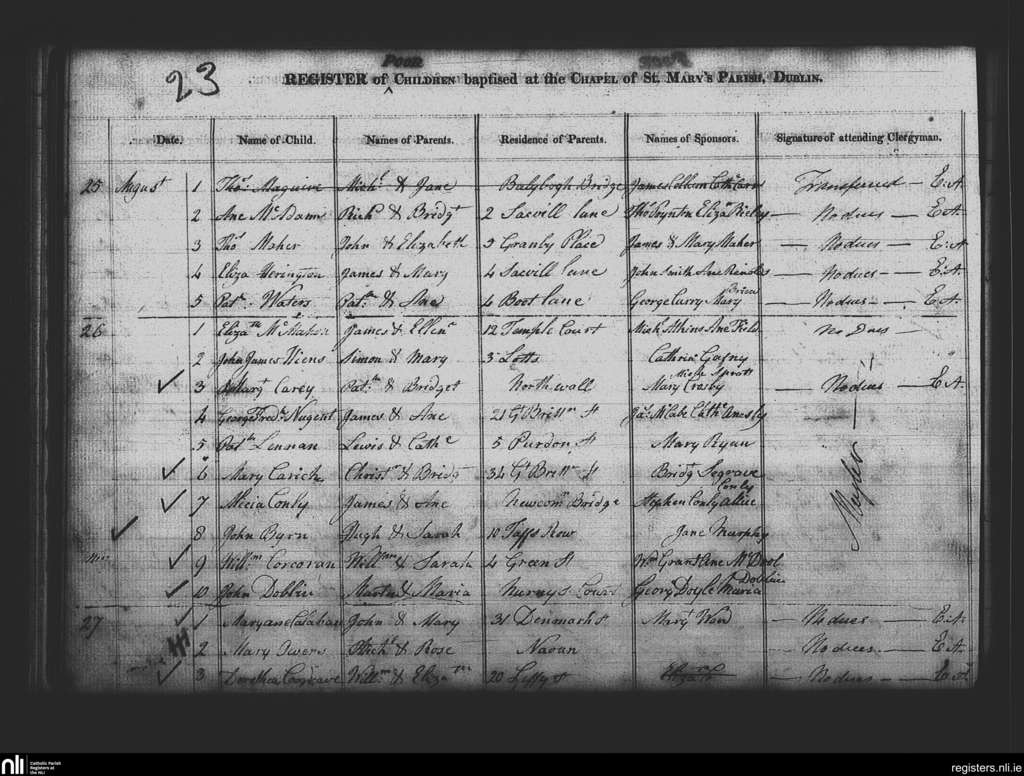 23
Poor
REGISTER of CHILDREN baptised at the CHAPEL of ST. MARY'S PARISH, DUBLIN.
Date. Name of Child. Names of Parents. Residence of Parents. Names of Sponsors. Signature of attending Clergyman.
25 August 1 Thos. Maguire Michl. & Jane Balybogh Bridge James Transferred — E.A
2 Ane McDann Richd & Bridgt 2 Sacvill lane Thos Boynton Eliza — No dues — E.A
3 Thos Maher John & Elizabeth 3 Granby Place James & Mary Maher — No dues — E.A
4 Eliza Herington James & Mary 4 Sacvill lane John Smith Ane — No dues — E.A
Brien
5 Patk. Waters Patk. & Ane 4 Boot lane George Carry Mary — No dues — E.A
26 1 Elizath James & Ellen 12 Temple Court Mick Atkins Ane Field No Dues —
2 John James Viens Simon & Mary 3 Lotts Cathrin Gafny
Spratt
3 Margt Carey Patk. & Bridget North wall Mary Crosby — No dues — E.A
4 George Fredk. Nugent James & Ane 21 Gt Brittn St Jas. McCabe Cathe Anesly
5 Patk Lennan Lewis & Cathe 5 Purdon St Mary Ryan
6 Mary Carick Christr & Bridgt 34 Gt Brittn St Bridgt Segrave
Conly
7 Alicia Conly James & Ane Newcomn Bridge Stephen Conly Allice
8 John Byrn Hugh & Sarah 10 Taffs Row Jane Murphy
9 Willm Corcoran Willm & Sarah 4 Green St Wm Grant Ane
Doblin
10 John Doblin Martin & Maria Nurnys Court Georg Doyle Maria
27 1 Maryane Calaban John & Mary 31 Denmark St Margt Ward — No dues — E.A
2 Mary Owens Michl & Rose Navan No dues — E.A
3 Dorothea Cosgrave Willm & Elizath 20 Liffy St — No dues — E.A
nli
Catholic Parish
Registers at
the NLI
registers.nli.ie